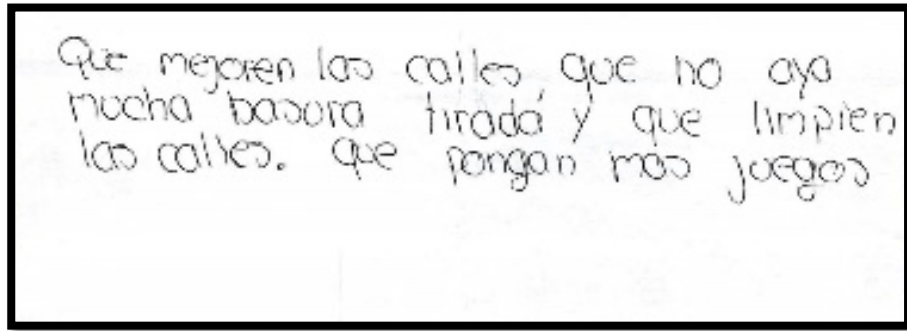 Que mejoren las calles, que no aya
mucha basura tirada y que limpien
las calles. Que pongan mas juegos